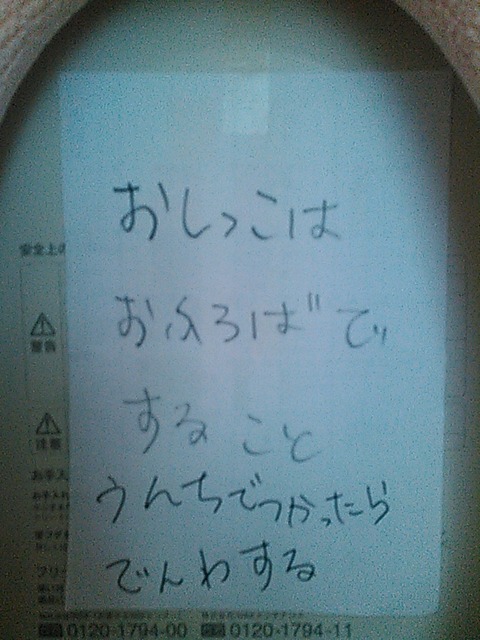 おしっこは
おふろばで
すること
うんちでつかったら
でんわする
安全上の
警告
注意
お手入
お手入れ
フリー
0120-1794-00 0120-1794-11